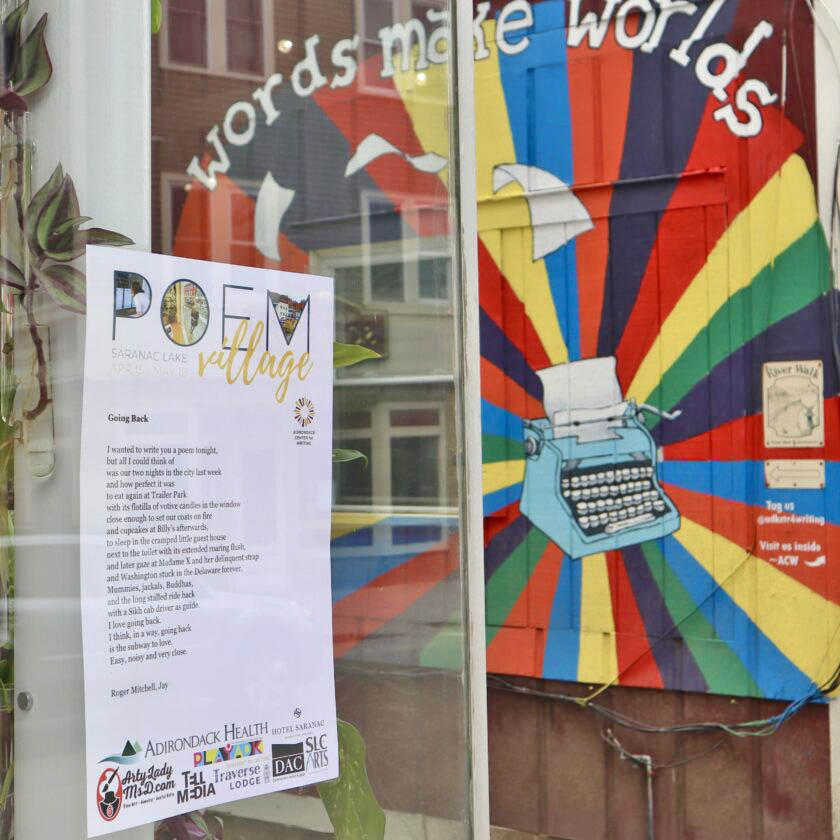 words make worlds
POEM
village
SARANAC LAKE
APR 15 - MAY 19
ADIRONDACK
CENTER for
WRITING
Going Back
I wanted to write you a poem tonight,
but all I could think of
was our two nights in the city last week
and how perfect it was
to eat again at Trailer Park
with its flotilla of votive candles in the window
close enough to set our coats on fire
and cupcakes at Billy's afterwards,
to sleep in the cramped little guest house
next to the toilet with its extended roaring flush,
and later gaze at Madame X and her delinquent strap
and Washington stuck in the Delaware forever.
Mummies, jackals, Buddhas,
and the long stalled ride back
with a Sikh cab driver as guide.
I love going back.
I think, in a way, going back
is the subway to love.
Easy, noisy and very close.
Roger Mitchell, Jay
ADIRONDACK HEALTH
HOTEL SARANAC
PLAYADK
ArtyLady
MsD.com
TELL
MEDIA
Traverse
LODGE
DAC
SLC
ARTS
River Walk
Tag us
@adkctr4writing
Visit us inside
~ACW